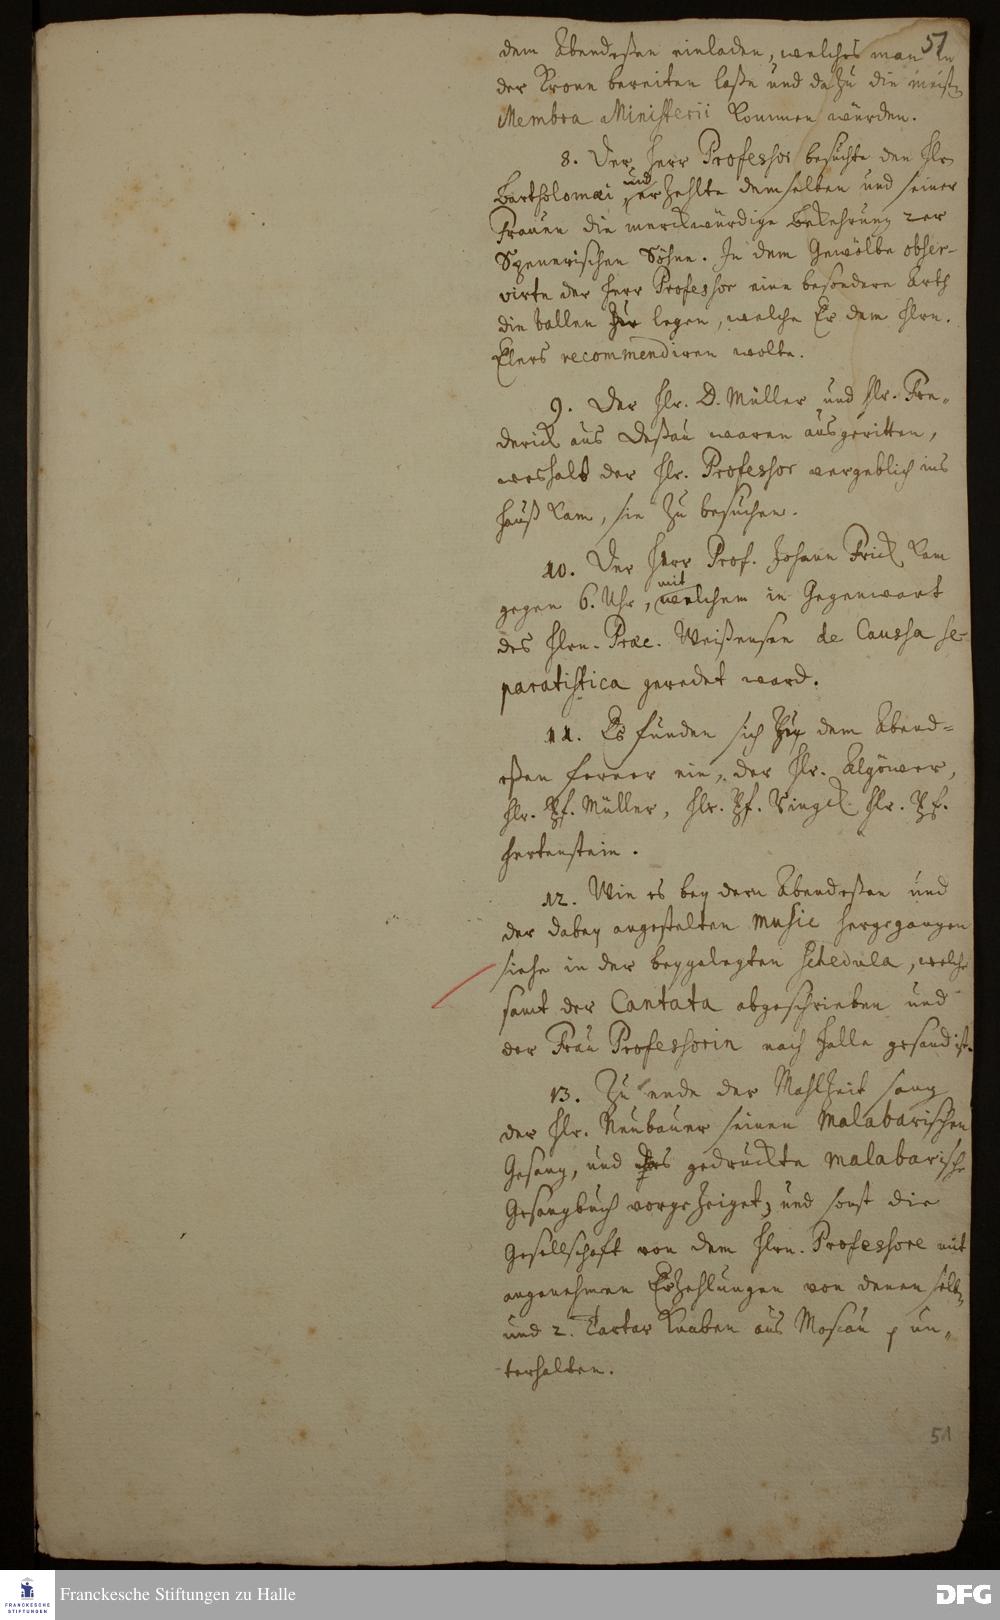 51
dem Abendeßen einladen, welches man in
der Krone bereiten laße und dazu die meisten
Membra Ministerii kommen würden.
8. Der Herr Professor besuchte den Hln
Bartholomæi, und erzehlte demselben und seiner
Frauen die merckwürdige Bekehrung 2er
Spenerischen Söhne. In dem Gewölbe obser-
virte der Herr Professor eine besondere Arth
die ballen zu legen, welche Er dem Hln.
Elers recommendiren wolte.
9. Der Hr. D. Müller und Hr. Fre-
derick aus Deßau waren ausgeritten,
weshalb der Hr. Professor vergeblich ins
Hauß kam, sie zu besuchen.
10. Der Herr Prof. Johann Frick kam
gegen 6. Uhr, mit welchem in Gegenwart
des Hln. Præc. Weißensee de Caussa se-
paratistica geredet ward.
11. Es funden sich zu dem Abend-
eßen ferner ein, der Hr. Algöwer,
Hr. Pf. Müller, Hr. Pf. Hr. Pf.
Hertenstein.
12. Wie es bey dem Abendeßen und
der dabey angestelten Music hergegangen
siehe in der beygelegten schedula, welche
samt der Cantata abgeschrieben und
der Frau Professorin nach Halle gesand ist.
13. Zu ende der Mahlzeit sang
der Hr. Neubauer seinen Malabarischen
Gesang, und das gedruckte malabarische
Gesangbuch vorgezeiget, und sonst die
Gesellschaft von dem Hln. Professore mit
angenehmen Erzehlungen von denenselben
und 2. Tartar Knaben aus Moscau p un-
terhalten.
51
FRANCKESCHE
STIFTUNGEN
Franckesche Stiftungen zu Halle
DFG